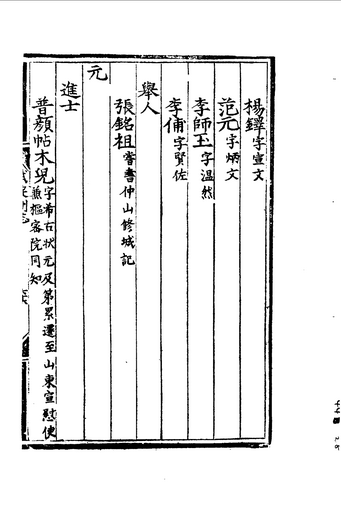 楊鐸字宣文
范元字炳文
李師玉字温然
李俌字賢佐
舉人
張銘祖嘗書仲山修城記
元
進士
普顏帖木兒字希右狀元及第累遷至山東宣慰使兼樞密院同知